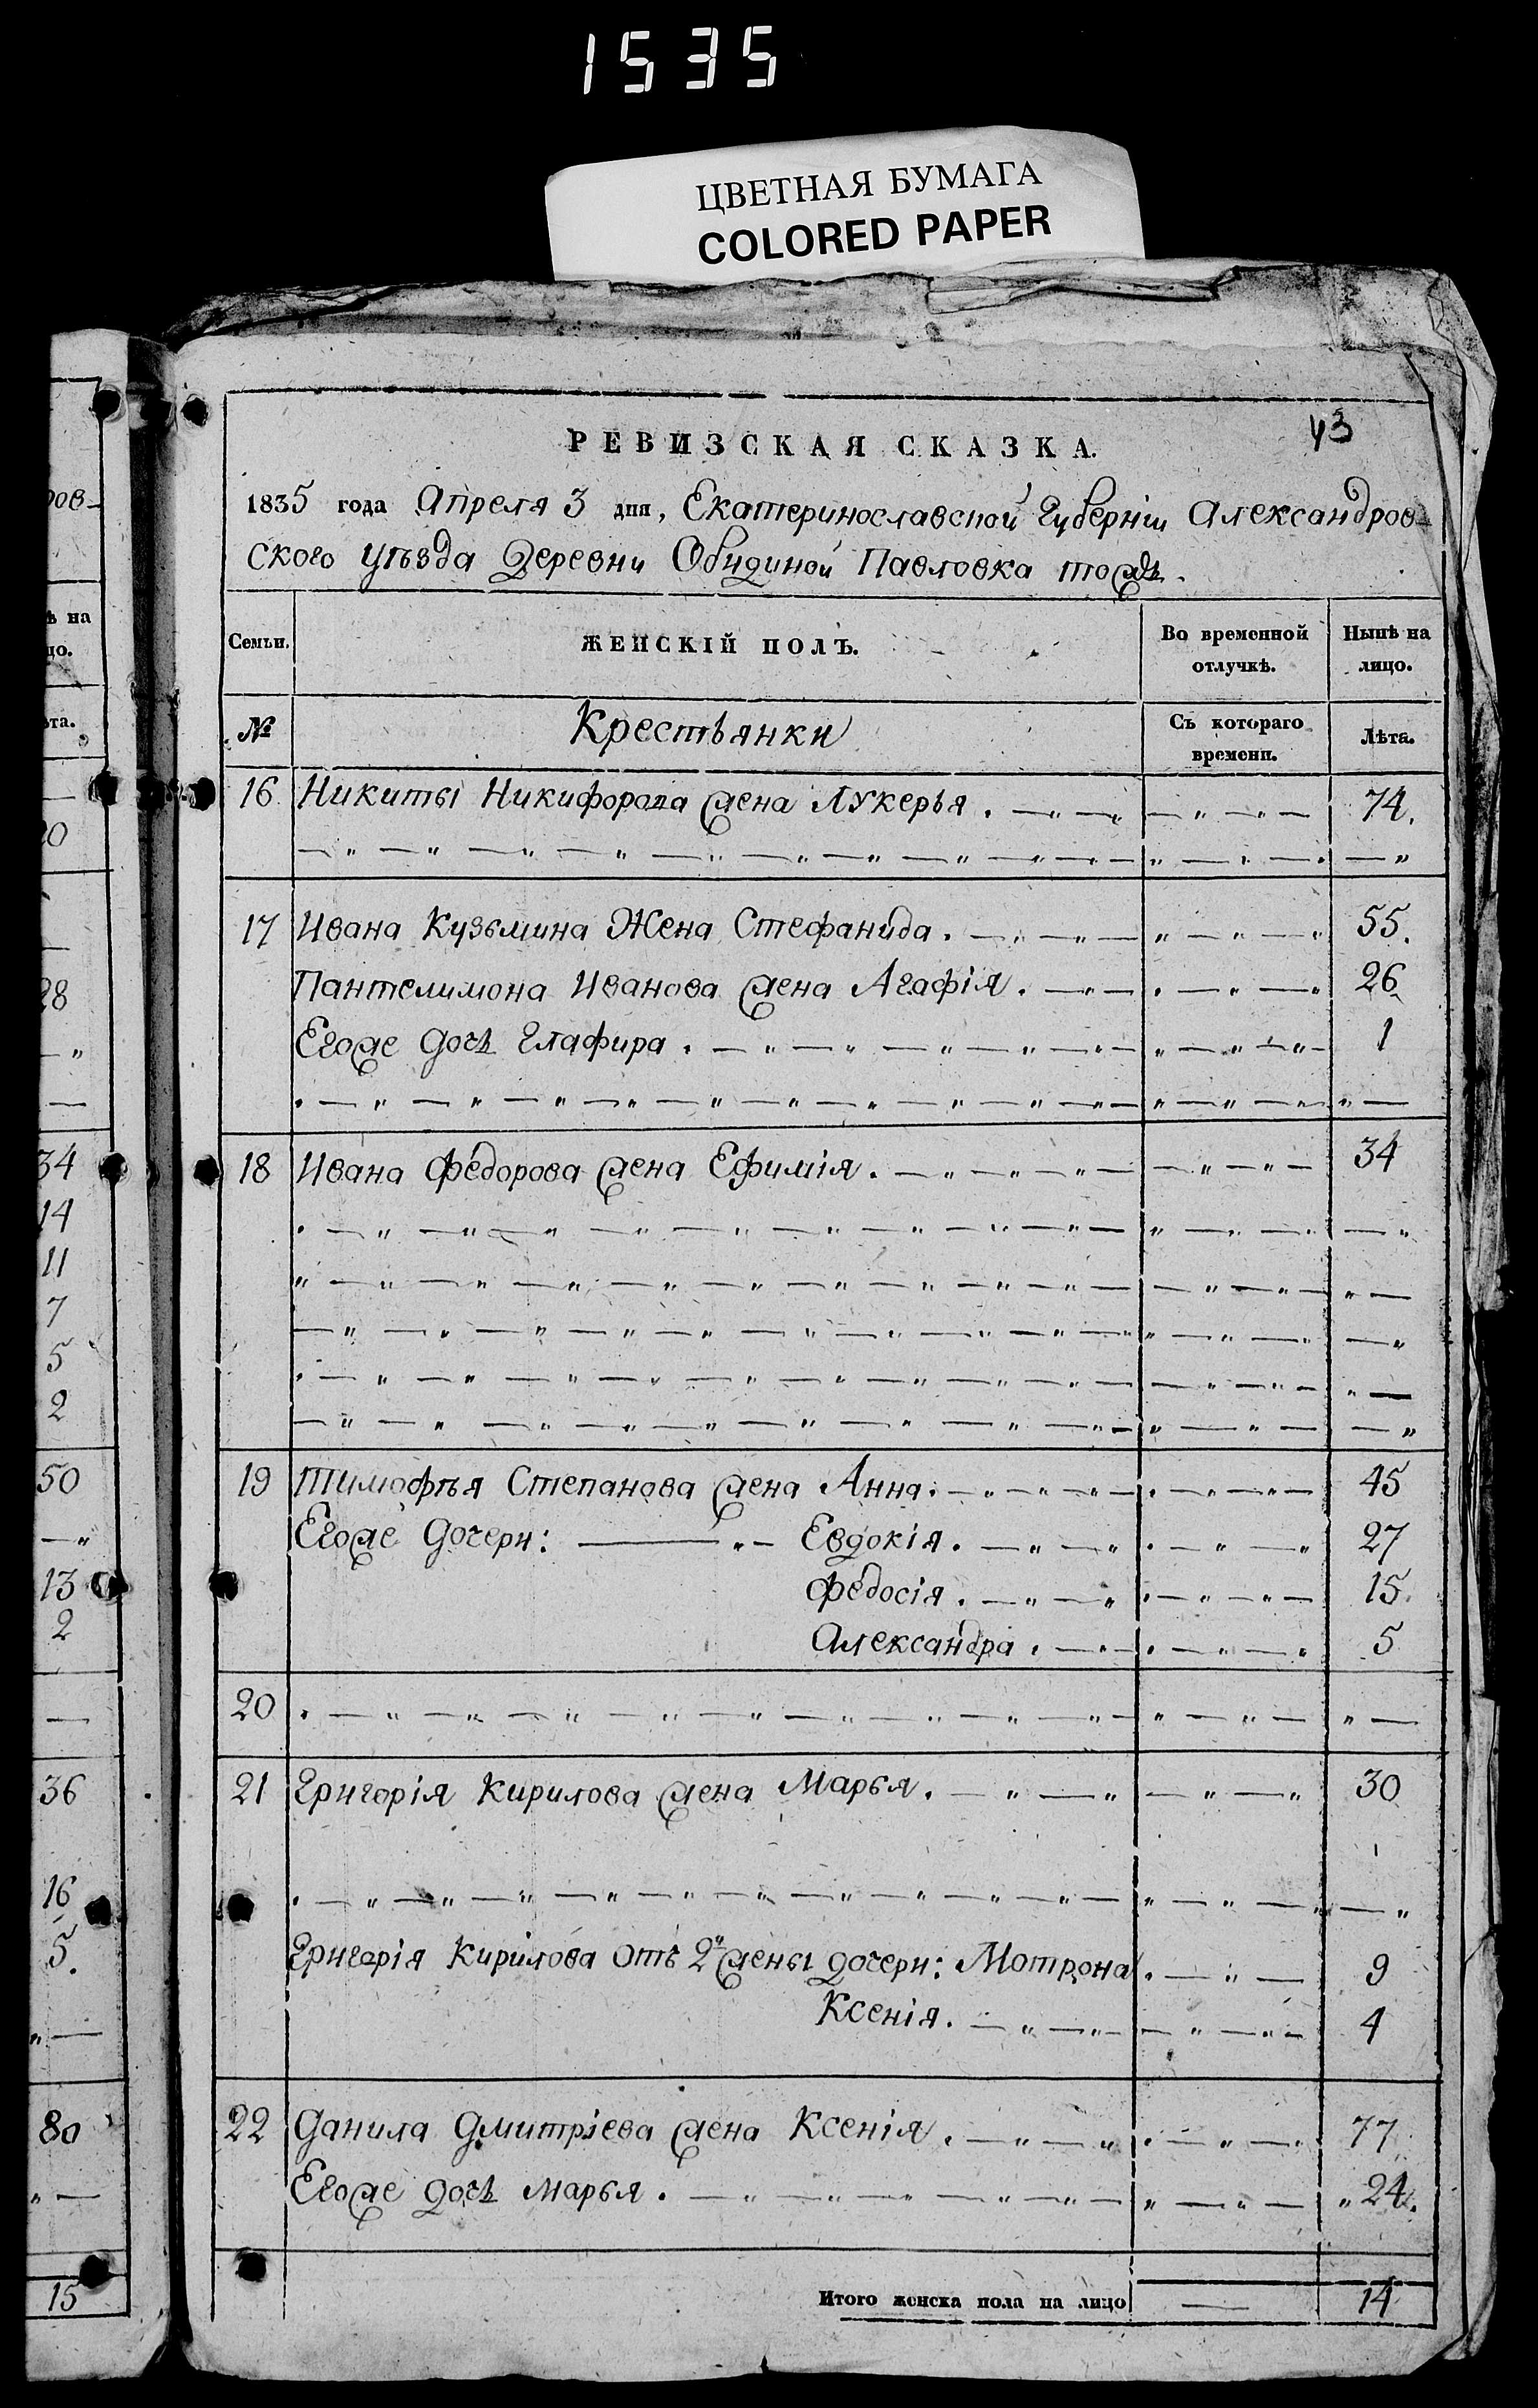 1535
ЦВЕТНАЯ БУМАГА
COLORED PAPER
43
РЕВИЗСКАЯ СКАЗКА.
1835 года Апреля 3 дня, Екатеринославской Губерніи Александров-
ского уѣзда Деревни Обидиной Павловка тожъ.
Семьи. ЖЕНСКІЙ ПОЛЪ. Во временной отлучкѣ. Нынѣ на лицо.
№ Крестьянки Съ котораго времени. Лѣта.
16 Никиты Никифорова жена Лукерья. 74.
17 Ивана Кузьмина Жена Стефанида. 55.
Пантелимона Иванова жена Агафія. 26.
Егоже дочь Глафира. 1
18 Ивана Федорова жена Ефимія. 34
19 Тимофѣя Степанова жена Анна. 45
Егоже дочери: Евдокія. 27
Федосія. 15.
Александра. 5
20
21 Григорія Кирилова жена Марья. 30
Григорія Кирилова отъ 2й жены дочери: Мотрона. 9
Ксенія. 4
22 Данила Дмитріева жена Ксенія. 77
Егоже дочь Марья. 24.
Итого женска пола на лицо — 14
ров-
ѣ на
цо.
ѣта.
20
28
34
14
11
7
5
2
50
13
2
36
16
5.
80
15